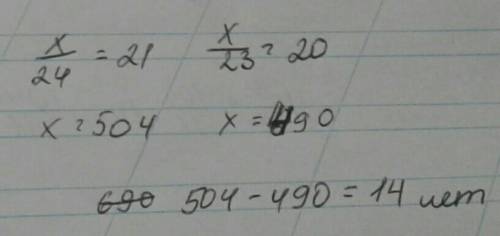 x/24 = 21 x/23 = 20
x = 504 x = 490
690 504 - 490 = 14 лет